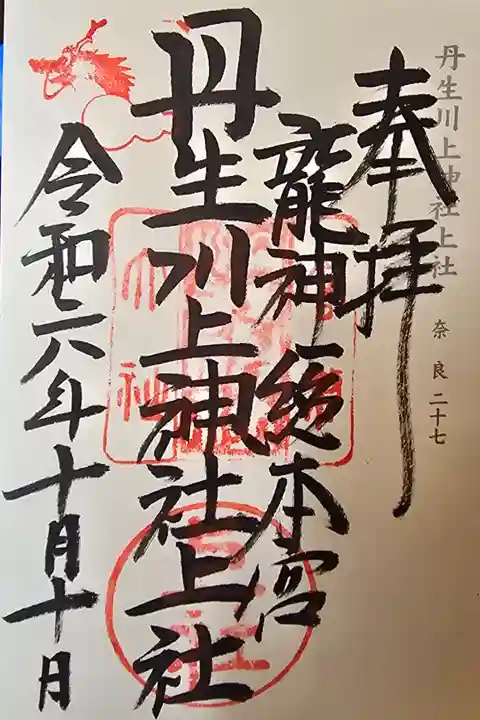 丹生川上神社上社
奈良二十七
奉拝
龍神総本宮
丹生川上神社上社
令和六年十月十日